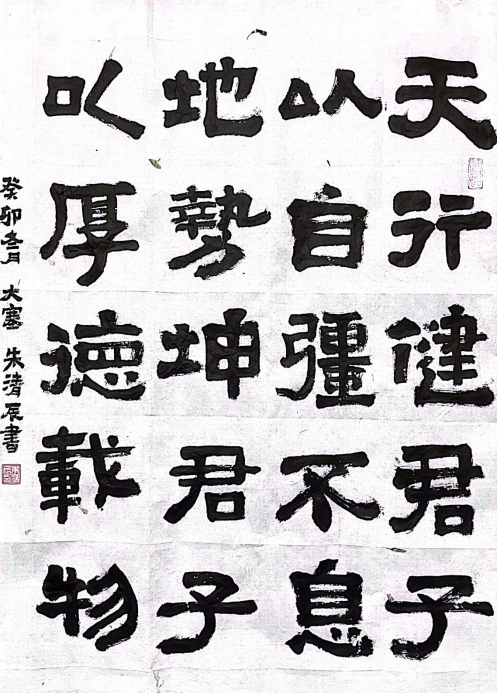 天行健君子
以自彊不息
地勢坤君子
以厚德載物
癸卯冬月 大寨 朱清辰書